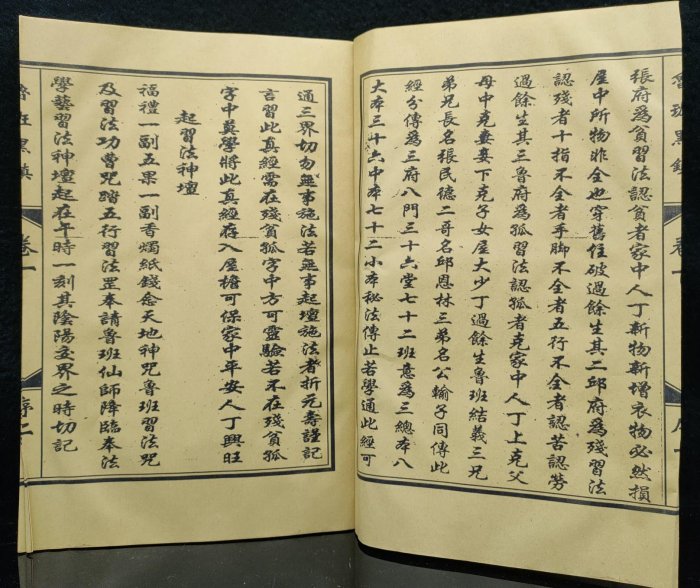 張府為貧習法認貧者家中人丁新物新增衣物必然損
屋中所物昨全也穿舊住破過餘生其二邱府為殘習法
認殘者十指不全者手脚不全者五行不全者認苦認勞
過餘生其三魯府為孤習法認孤者克家中人丁上克父
母中克妻妾下克子女屋大少丁過餘生魯班結義三兄
弟兄長名張民德二哥名邱恩林三弟名公輸子同傳此
經分傳為三府八門三十六堂七十二班意為三總本八
大本三十六中本七十二小本秘法傳止若學通此經可
通三界切勿無事施法若無事起壇施法者折元壽謹記
言習此真經需在殘貧孤字中方可靈驗若不在殘貧孤
字中莫學將此真經存入屋檐可保家中年安人丁興旺
起習法神壇
福禮一副五果一副香燭紙錢念天地神咒魯班習法咒
及習法功曹咒踏五行習法罡奉請魯班仙師降臨奉法
學藝習法神壇起在午時一刻其陰陽交界之時切記
魯班黑鎮
卷一
序二